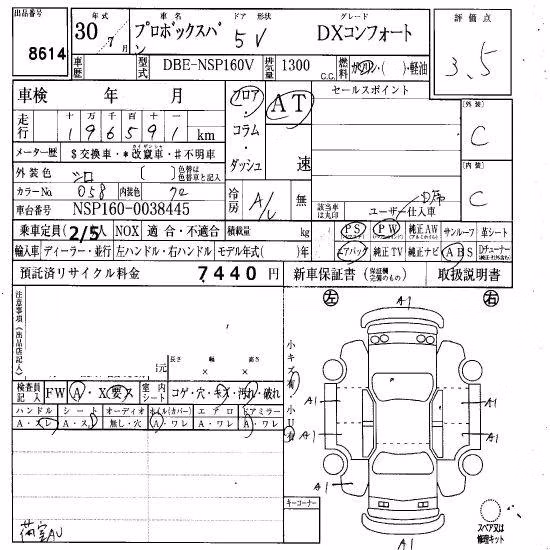 出品番号 8614
年式 30年7月
車名 プロボックスバン
ドア 形状 5V
グレード DXコンフォート
評価点 3.5
車歴
型式 DBE-NSP160V
排気量 1300 C.C.
燃料 ガソリン・( )・軽油
車検 年 月
フロア・コラム・ダッシュ
AT 速
セールスポイント
外装 C
走行 十万千百十一
196591 km
メーター歴 $交換車・*改竄車・#不明車
外装色 シロ ( ) 色替は色替車と記入
内装 C
カラーNo. 058 内装色
冷房 A/C 無
該当車は丸印
ユーザー仕入車
車台番号 NSP160-0038445
乗車定員 (2/5)人 NOX 適合・不適合 積載量 kg
PS PW 純正AW サンルーフ 革シート
輸入車 ディーラー・並行 左ハンドル・右ハンドル モデル年式( )年
エアバック 純正TV 純正ナビ ABS
預託済リサイクル料金 7440円 新車保証書 (保証欄完備のもの) 取扱説明書
左 A1 右
注意事項(出品店記入)
元
長さ × 幅 × 高さ
小キズ有・小U有
検査員記入 FW A・X要ス 室内シート コゲ・穴・キズ・汚れ・破れ
ハンドル シート オーディオ ホイル(カバー) エアロ ドアミラー
A・スレ A・ス 無し・穴 A・ワレ A・ワレ A・ワレ
A1
A1
A1
A1
A1
A1
キーコーナー
荷室AU
A1
スペア又は修理キット